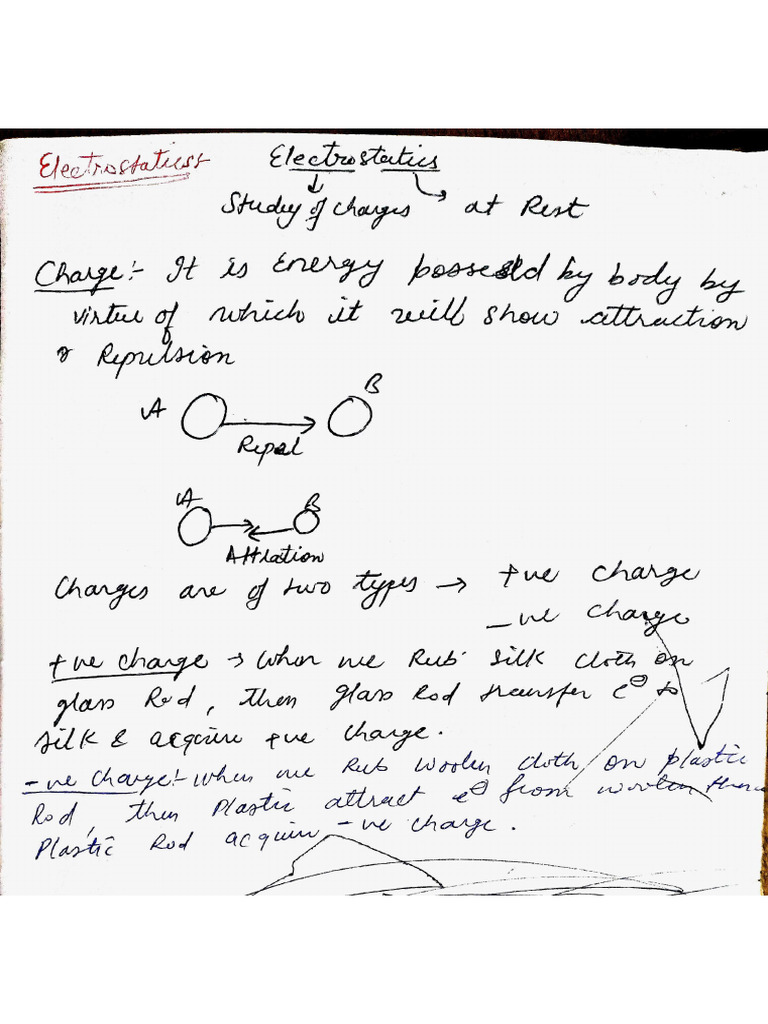 Electrostatics
Electrostatics
Study of charges at Rest
Charge:- It is Energy possessed by body by
virtue of which it will show attraction
& Repulsion
A B
Repel
A B
Attration
Charges are of two types → +ve charge
-ve charge
+ve charge → When we Rub silk cloth on
glass Rod, then glass Rod transfer e⊖ to
silk & acquire +ve charge.
-ve charge:- when we Rub woolen cloth on plastic
Rod, then Plastic attract e⊖ from woolen then
Plastic Rod acquire -ve charge.